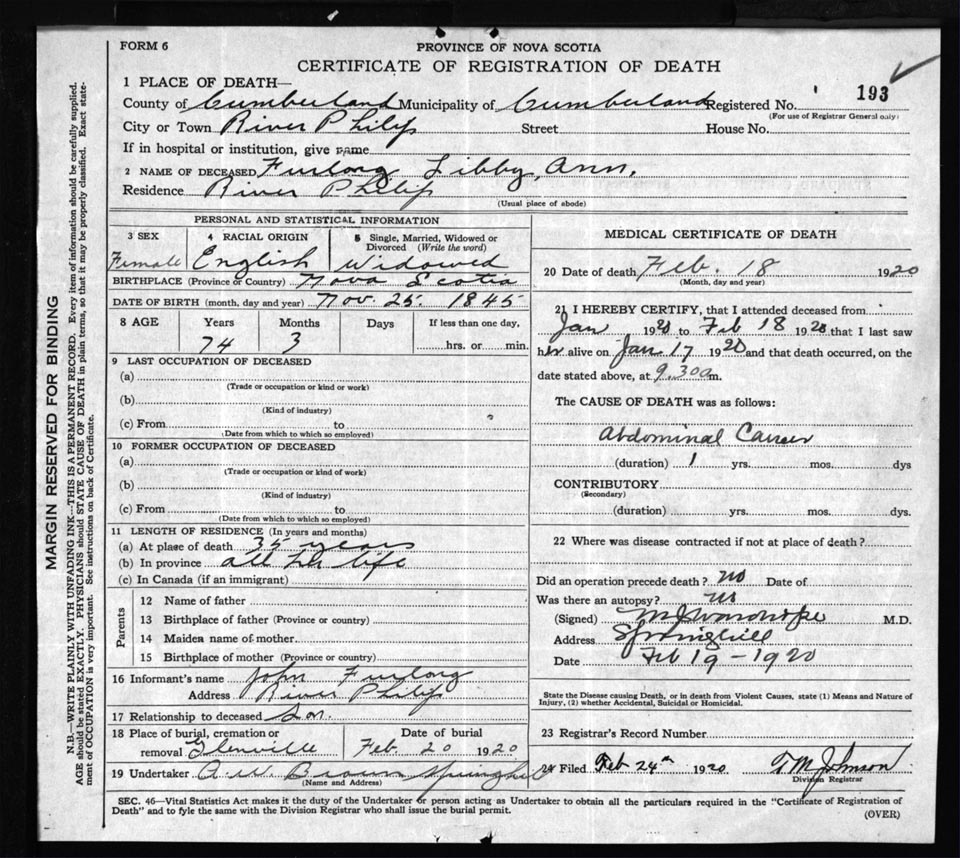 FORM 6
PROVINCE OF NOVA SCOTIA
CERTIFICATE OF REGISTRATION OF DEATH
193
1 PLACE OF DEATH—
County of Cumberland Municipality of Cumberland Registered No.
(For use of Registrar General only)
City or Town River Philip Street House No.
If in hospital or institution, give name
2 NAME OF DECEASED Furlong Libby, Ann,
Residence River Philip
(Usual place of abode)
PERSONAL AND STATISTICAL INFORMATION
3 SEX 4 RACIAL ORIGIN 5 Single, Married, Widowed or Divorced (Write the word)
Female English Widowed
BIRTHPLACE (Province or Country) Nova Scotia
DATE OF BIRTH (month, day and year) Nov. 25. 1845
8 AGE Years Months Days If less than one day.
74 3 hrs. or min.
9 LAST OCCUPATION OF DECEASED
(a)
(Trade or occupation or kind or work)
(b)
(Kind of industry)
(c) From to
(Date from which to which so employed)
10 FORMER OCCUPATION OF DECEASED
(a)
(Trade or occupation or kind of work)
(b)
(Kind of industry)
(c) From to
(Date from which to which so employed)
11 LENGTH OF RESIDENCE (In years and months)
(a) At place of death 35 years
(b) In province all her life
(c) In Canada (if an immigrant)
Parents
12 Name of father
13 Birthplace of father (Province or country)
14 Maiden name of mother
15 Birthplace of mother (Province or country)
16 Informant's name John Furlong
Address River Philip
17 Relationship to deceased Son.
18 Place of burial, cremation or removal Glenville
Date of burial
Feb. 20 1920
19 Undertaker A.W. Brown Springhill
(Name and Address)
MEDICAL CERTIFICATE OF DEATH
20 Date of death Feb. 18 1920
(Month, day and year)
21 I HEREBY CERTIFY, that I attended deceased from
Jan 1920 to Feb 18 1920 that I last saw
her alive on Jan 17 1920 and that death occurred, on the
date stated above, at 9.30 a m.
The CAUSE OF DEATH was as follows:
Abdominal Cancer
(duration) 1 yrs. mos. dys
CONTRIBUTORY
(Secondary)
(duration) yrs. mos. dys.
22 Where was disease contracted if not at place of death?
Did an operation precede death? no Date of
Was there an autopsy? no
(Signed) M.D.
Address Springhill
Date Feb 19-1920
State the Disease causing Death, or in death from Violent Causes, state (1) Means and Nature of
Injury, (2) whether Accidental, Suicidal or Homicidal.
23 Registrar's Record Number
24 Filed Feb 24th 1920 Johnson
Division Registrar
SEC. 46—Vital Statistics Act makes it the duty of the Undertaker or person acting as Undertaker to obtain all the particulars required in the "Certificate of Registration of
Death" and to fyle the same with the Division Registrar who shall issue the burial permit.
(OVER)
MARGIN RESERVED FOR BINDING
N.B.—WRITE PLAINLY WITH UNFADING INK—THIS IS A PERMANENT RECORD. Every item of information should be carefully supplied.
AGE should be stated EXACTLY. PHYSICIANS should STATE CAUSE OF DEATH in plain terms, so that it may be properly classified. Exact state-
ment of OCCUPATION is very important. See instructions on back of Certificate.